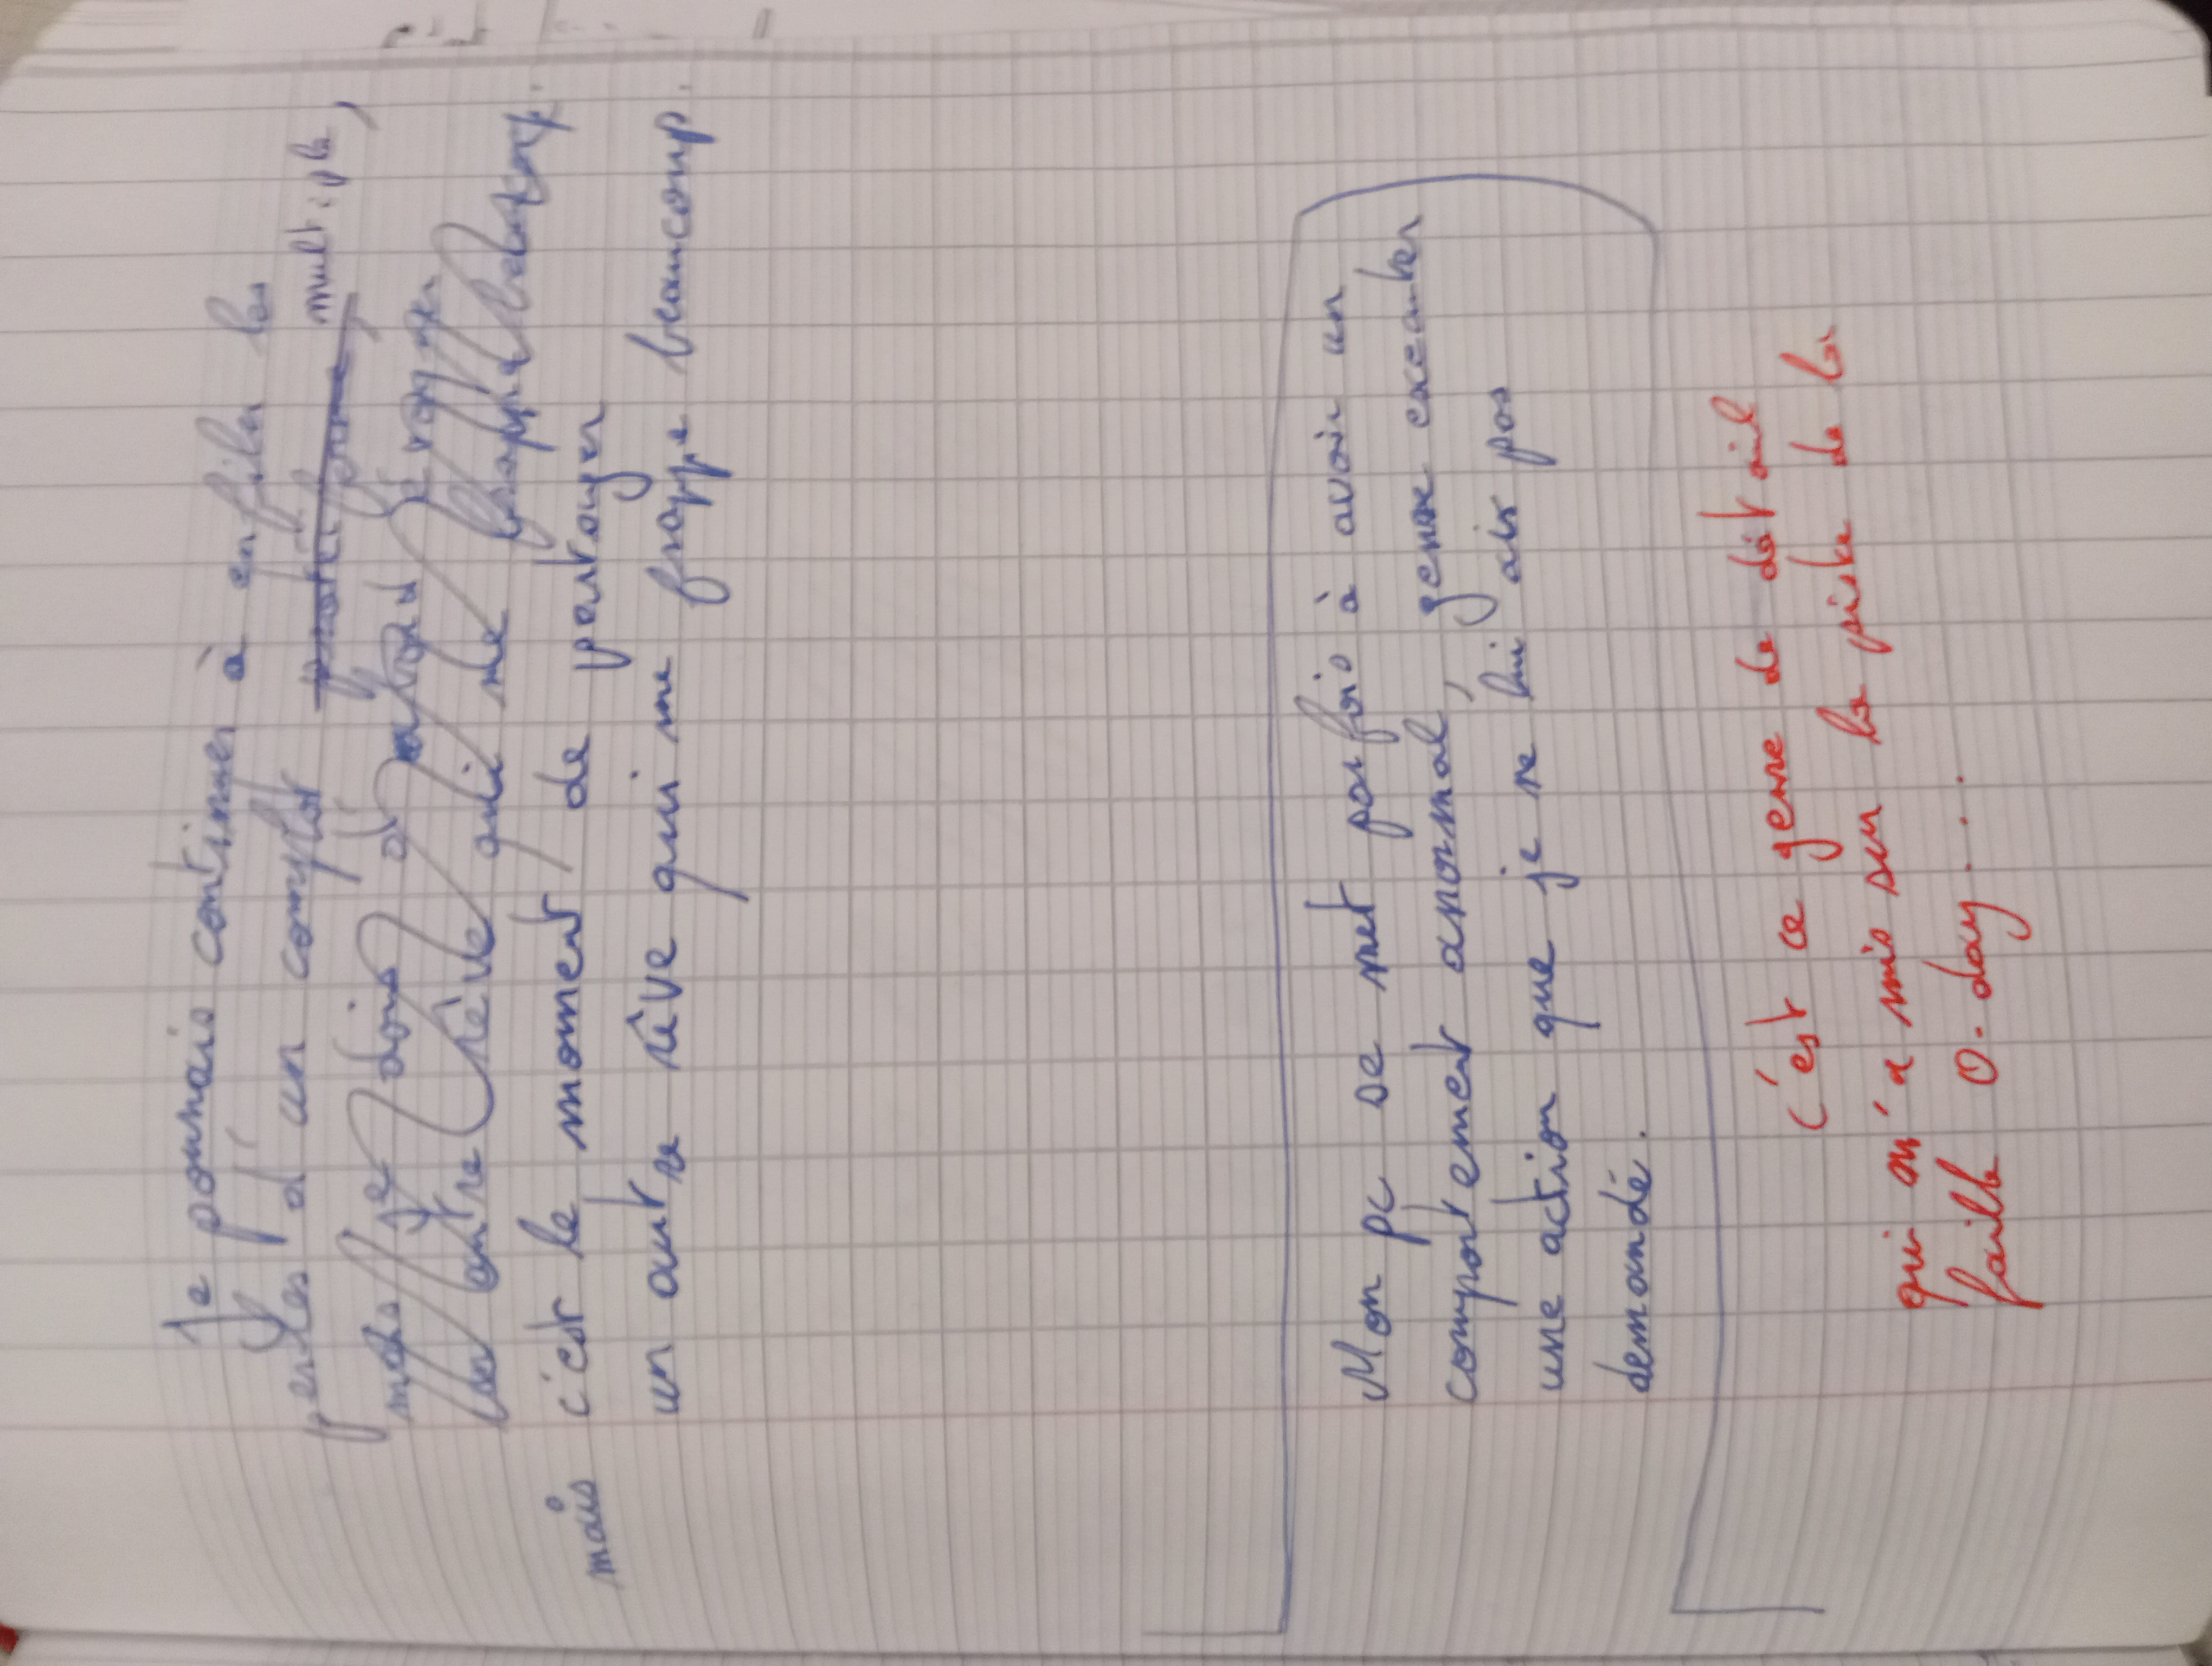 Je pourrais continuer à enfiler les
perles d'un complot protéiforme, multiple,
mais je dois d'abord évoquer
un autre rêve qui me frappe beaucoup.
mais c'est le moment de partager
un autre rêve qui me frappe beaucoup.
Mon pc se met parfois à avoir un
comportement anormal, genre executer
une action que je ne lui ais pas
demandé.
c'est ce genre de détail
qui m'a mis sur la piste de la
faille 0-day...